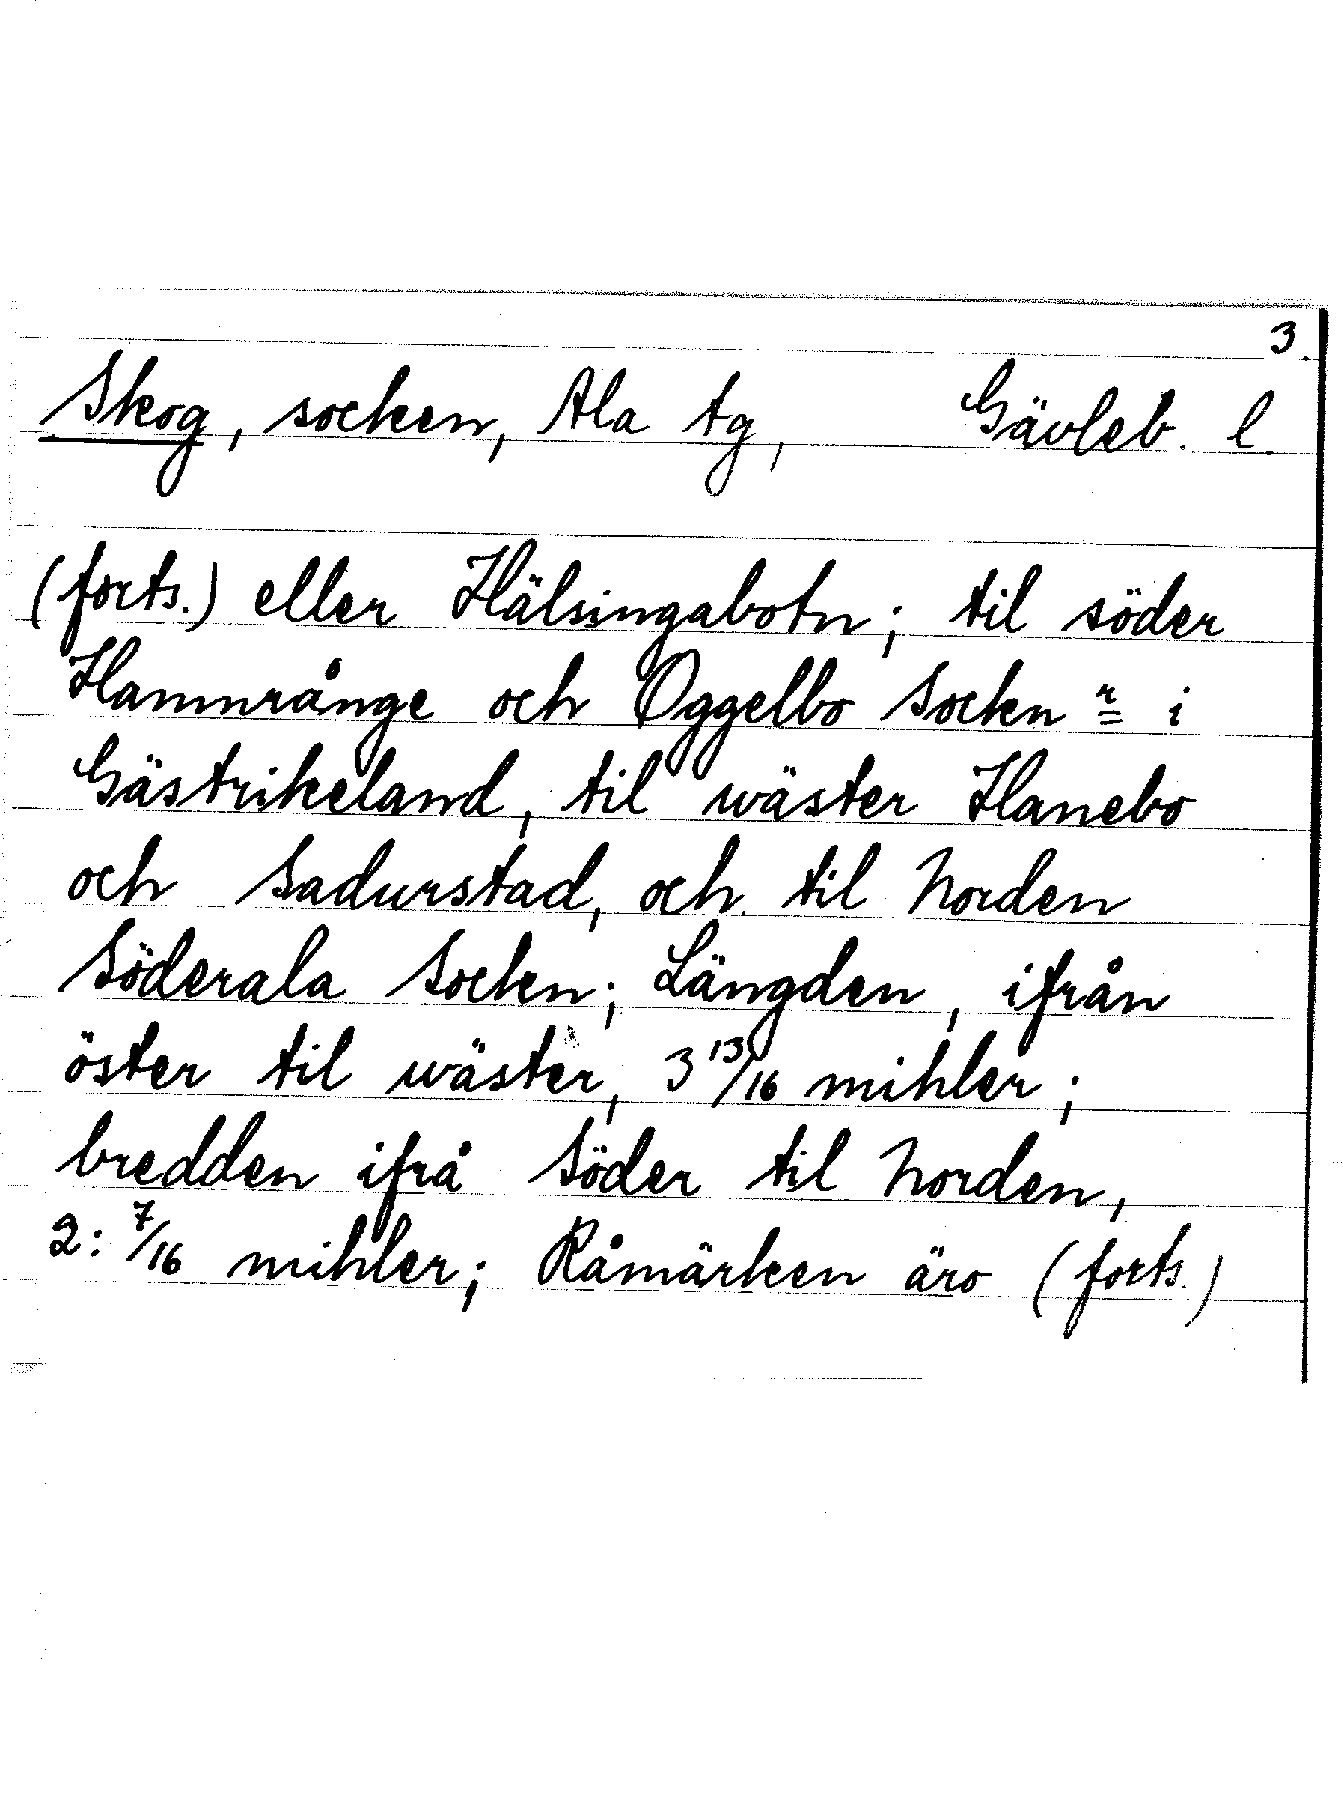 3.
Skog, socken, Ala tg, Gävleb. l.
(forts.) eller Hälsingabotn; til söder
Hamnrånge och Oggelbo Sockn r i
Gästrikeland, til wäster Hanebo
och Sadurstad, och til Norden
Söderala Sockn; Längden, ifrån
öster til wäster, 3 13/16 mihler;
bredden ifrå Söder til Norden,
2: 7/16 mihler; Råmärken äro (forts.)